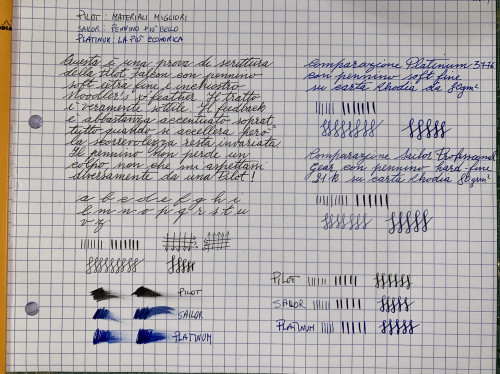 PILOT: MATERIALI MIGLIORI
SAILOR: PENNINO PIÙ BELLO
PLATINUM: LA PIÙ ECONOMICA
Questa è una prova di scrittura
della Pilot Falcon con pennino
soft extra fine e inchiostro
Noodler's x-feather. Il tratto
è veramente sottile. Il feedback
è abbastanza accentuato soprat=
tutto quando si accellera però
la scorrevolezza resta invariata
Il pennino non perde un
colpo non che mi aspettassi
diversamente da una Pilot!
a b c d e f g h i
l m n o p q r s t u
v z
PILOT
SAILOR
PLATINUM
Comparazione Platinum 3776
con pennino soft fine
su carta Rhodia da 80gm²
Comparazione Sailor Professional
Gear con pennino hard fine
21k su carta Rhodia 80gm²
PILOT
SAILOR
PLATINUM